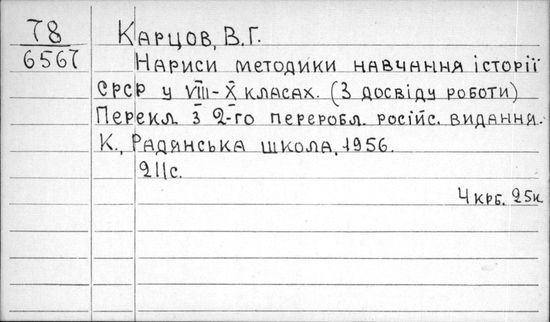 78
6567
Карцов, В.Г.
Нариси методики навчання історії
СРСР у VIII-X класах. (З досвіду роботи)
Перекл. з 2-го переробл. російс. видання.
К., Радянська школа, 1956.
211с.
4 крб. 25к.